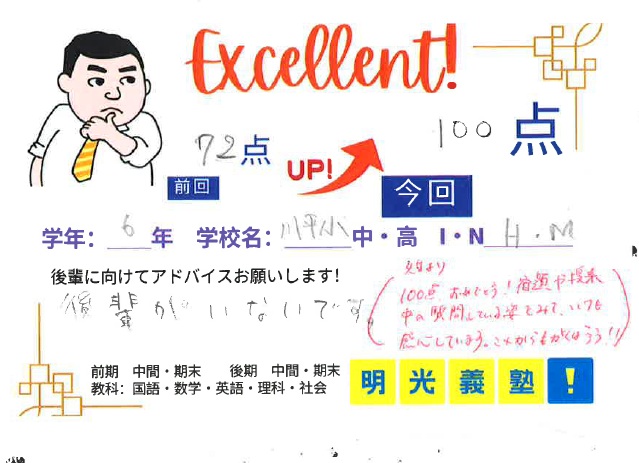 Excellent!
72点 UP! 100点
前回 今回
学年: 6年 学校名: 川平小 中・高 I・N H.M
後輩に向けてアドバイスお願いします!
後輩がいないです。
先生より
100点 おめでとう! 宿題や授業
中の質問している姿をみて、いつも
感心しています。これからもがんばろう!!
前期 中間・期末 後期 中間・期末
教科: 国語・数学・英語・理科・社会
明光義塾!